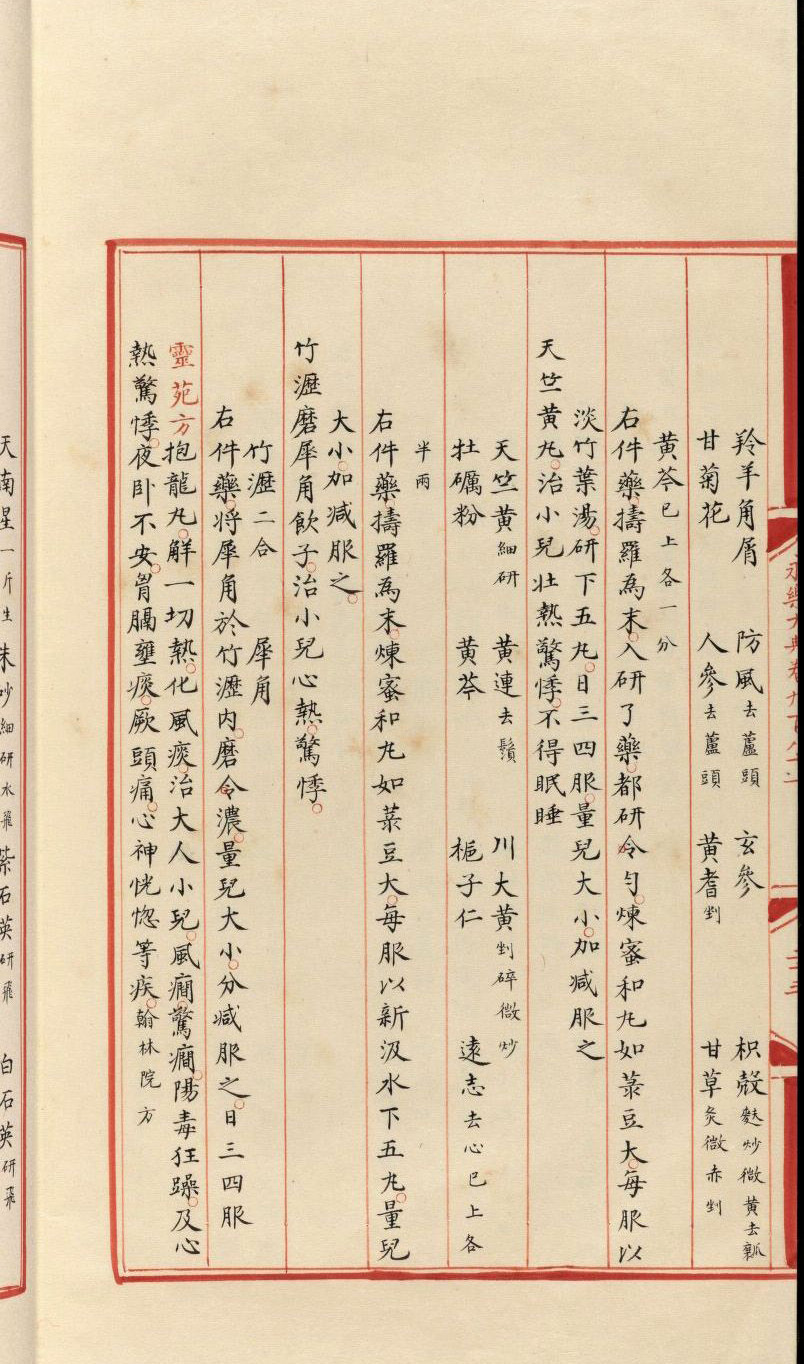 羚羊角屑　防風去蘆頭　玄參　枳殼麩炒微黃去瓤
甘菊花　人參去蘆頭　黃耆剉　甘草炙微赤剉
黃芩已上各一分
右件藥擣羅為末入研了藥都研令勻煉蜜和丸如菉豆大每服以
淡竹葉湯研下五丸日三四服量兒大小加減服之
天竺黃丸治小兒壯熱驚悸不得眠睡
天竺黃細研　黃連去鬚　川大黃剉碎微炒
牡礪粉　黃芩　梔子仁　遠志去心已上各
半兩
右件藥擣羅為末煉蜜和丸如菉豆大每服以新汲水下五丸量兒
大小加減服之
竹瀝磨犀角飲子治小兒心熱驚悸
竹瀝二合　犀角
右件藥將犀角於竹瀝內磨令濃量兒大小分減服之日三四服
靈苑方抱龍丸解一切熱化風痰治大人小兒風癇驚癇陽毒狂躁及心
熱驚悸夜卧不安胷膈壅痰厥頭痛心神恍惚等疾翰林院方
天南星一斤生　朱砂細研水飛　紫石英研飛　白石英研飛